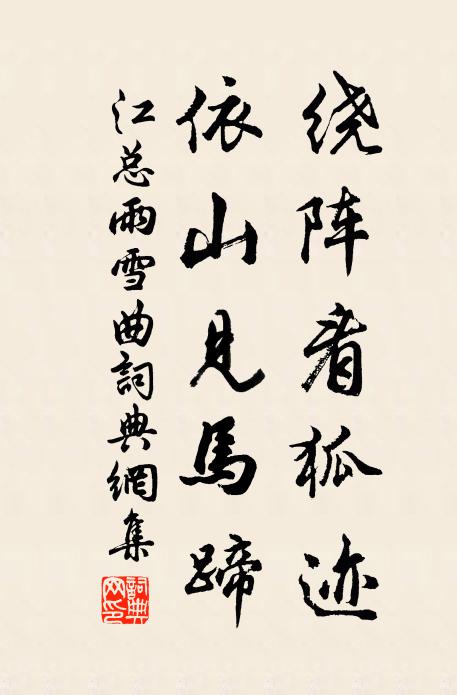 绕阵看狐迹
依山见馬蹄
江总雨雪曲詞典網集
詞典网印